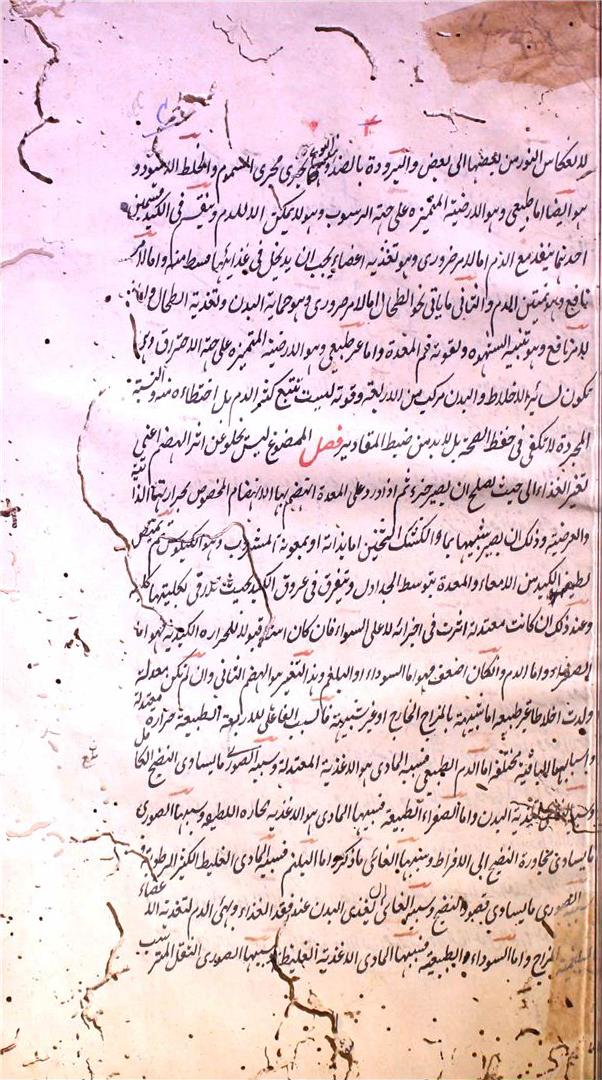 لانعكاس النور من بعضها الى بعض والبرودة بالضد والخلط الاسود و
هو ايضا اما طبيعي وهو الدرضية المتميزه على جهة الرسوب وهو لا يمكن الا للدم وينقسم في الكبد قسمين
احدهما ينفذ مع الدم اما لامر ضروري وهو تغذيه اعضاء يجب ان يدخل في غذايها قسط منه واما لامر
نافع وهو تمتين الدم والثاني ما ياتي نحو الطحال اما لامر ضروري وهو حماية البدن وتغذية الطحال واما
لامر نافع وهو تنبيه الشهوه وتقوية فم المعدة واما غير طبيعي وهو الدرضية المتميزه على جهة الاحتراق وهي
تكون لسائر الاخلاط والبدن مركب من الاربعة وقوته ليست تتبع كثرة الدم بل اغتذاءه منه والنسبة
المجردة لا تكفي في حفظ الصحة بل لابد من ضبط المقادير فصل الممضوغ ليس يخلو عن اثر الهضم اعني
تغير الغذاء الى حيث يصلح ان يصير جزء ثم اذا ورد على المعدة انهضم بها الانهضام المخصوص بحرارتها الذا
والعرضية وذلك ان يصير شبيها بماء الكشك الثخين اما بذاته او بمعونة المشروب وهو الكيلوس ثم ينتقص
لطيفه الكبد من الامعاء والمعدة بتوسط الجداول وتتفرق في عروق الكبد بحيث تلاقي بكليتها كلية
وعند ذلك ان كانت معتدلة اثرت في اجزائه لا على السواء فان كان اشد قبولا للحراره الكبدية فهو اما
الصفراء واما الدم وان كان اضعف فهو اما السوداء او البلغم وهذا التغير هو الهضم الثاني وان لم تكن معتدلة
ولدت اخلاطا غير طبيعه اما شبيهة بالمزاج الخارج او غير شبيهة فالسبب الفاعلي للاربعة الطبيعة حرارة معتدلة
واسبابها الباقية مختلفة اما الدم الطبيعي فسببه المادي هو الاغذية المعتدلة وسببه الصوري ما يساوي النضج الكا
تغذية البدن واما الصفراء الطبيعه فسببها المادي هو الاغذية الحاره اللطيفه وسببها الصوري
ما يساوي مجاوزة النضج الى الافراط وسببها الغائي ما ذكر واما البلغم فسببه المادي الغليظ الكثير الرطوبة
الصوري ما يساوي قصور النضج وسببه الغائي ان يغذي البدن عند فقد الغذاء ويهيئ الدم لتغذية الاعضاء
البلغمية المزاج واما السوداء الطبيعية فسببها المادي الاغذية الغليظة وسببها الصوري الثفل المترسب